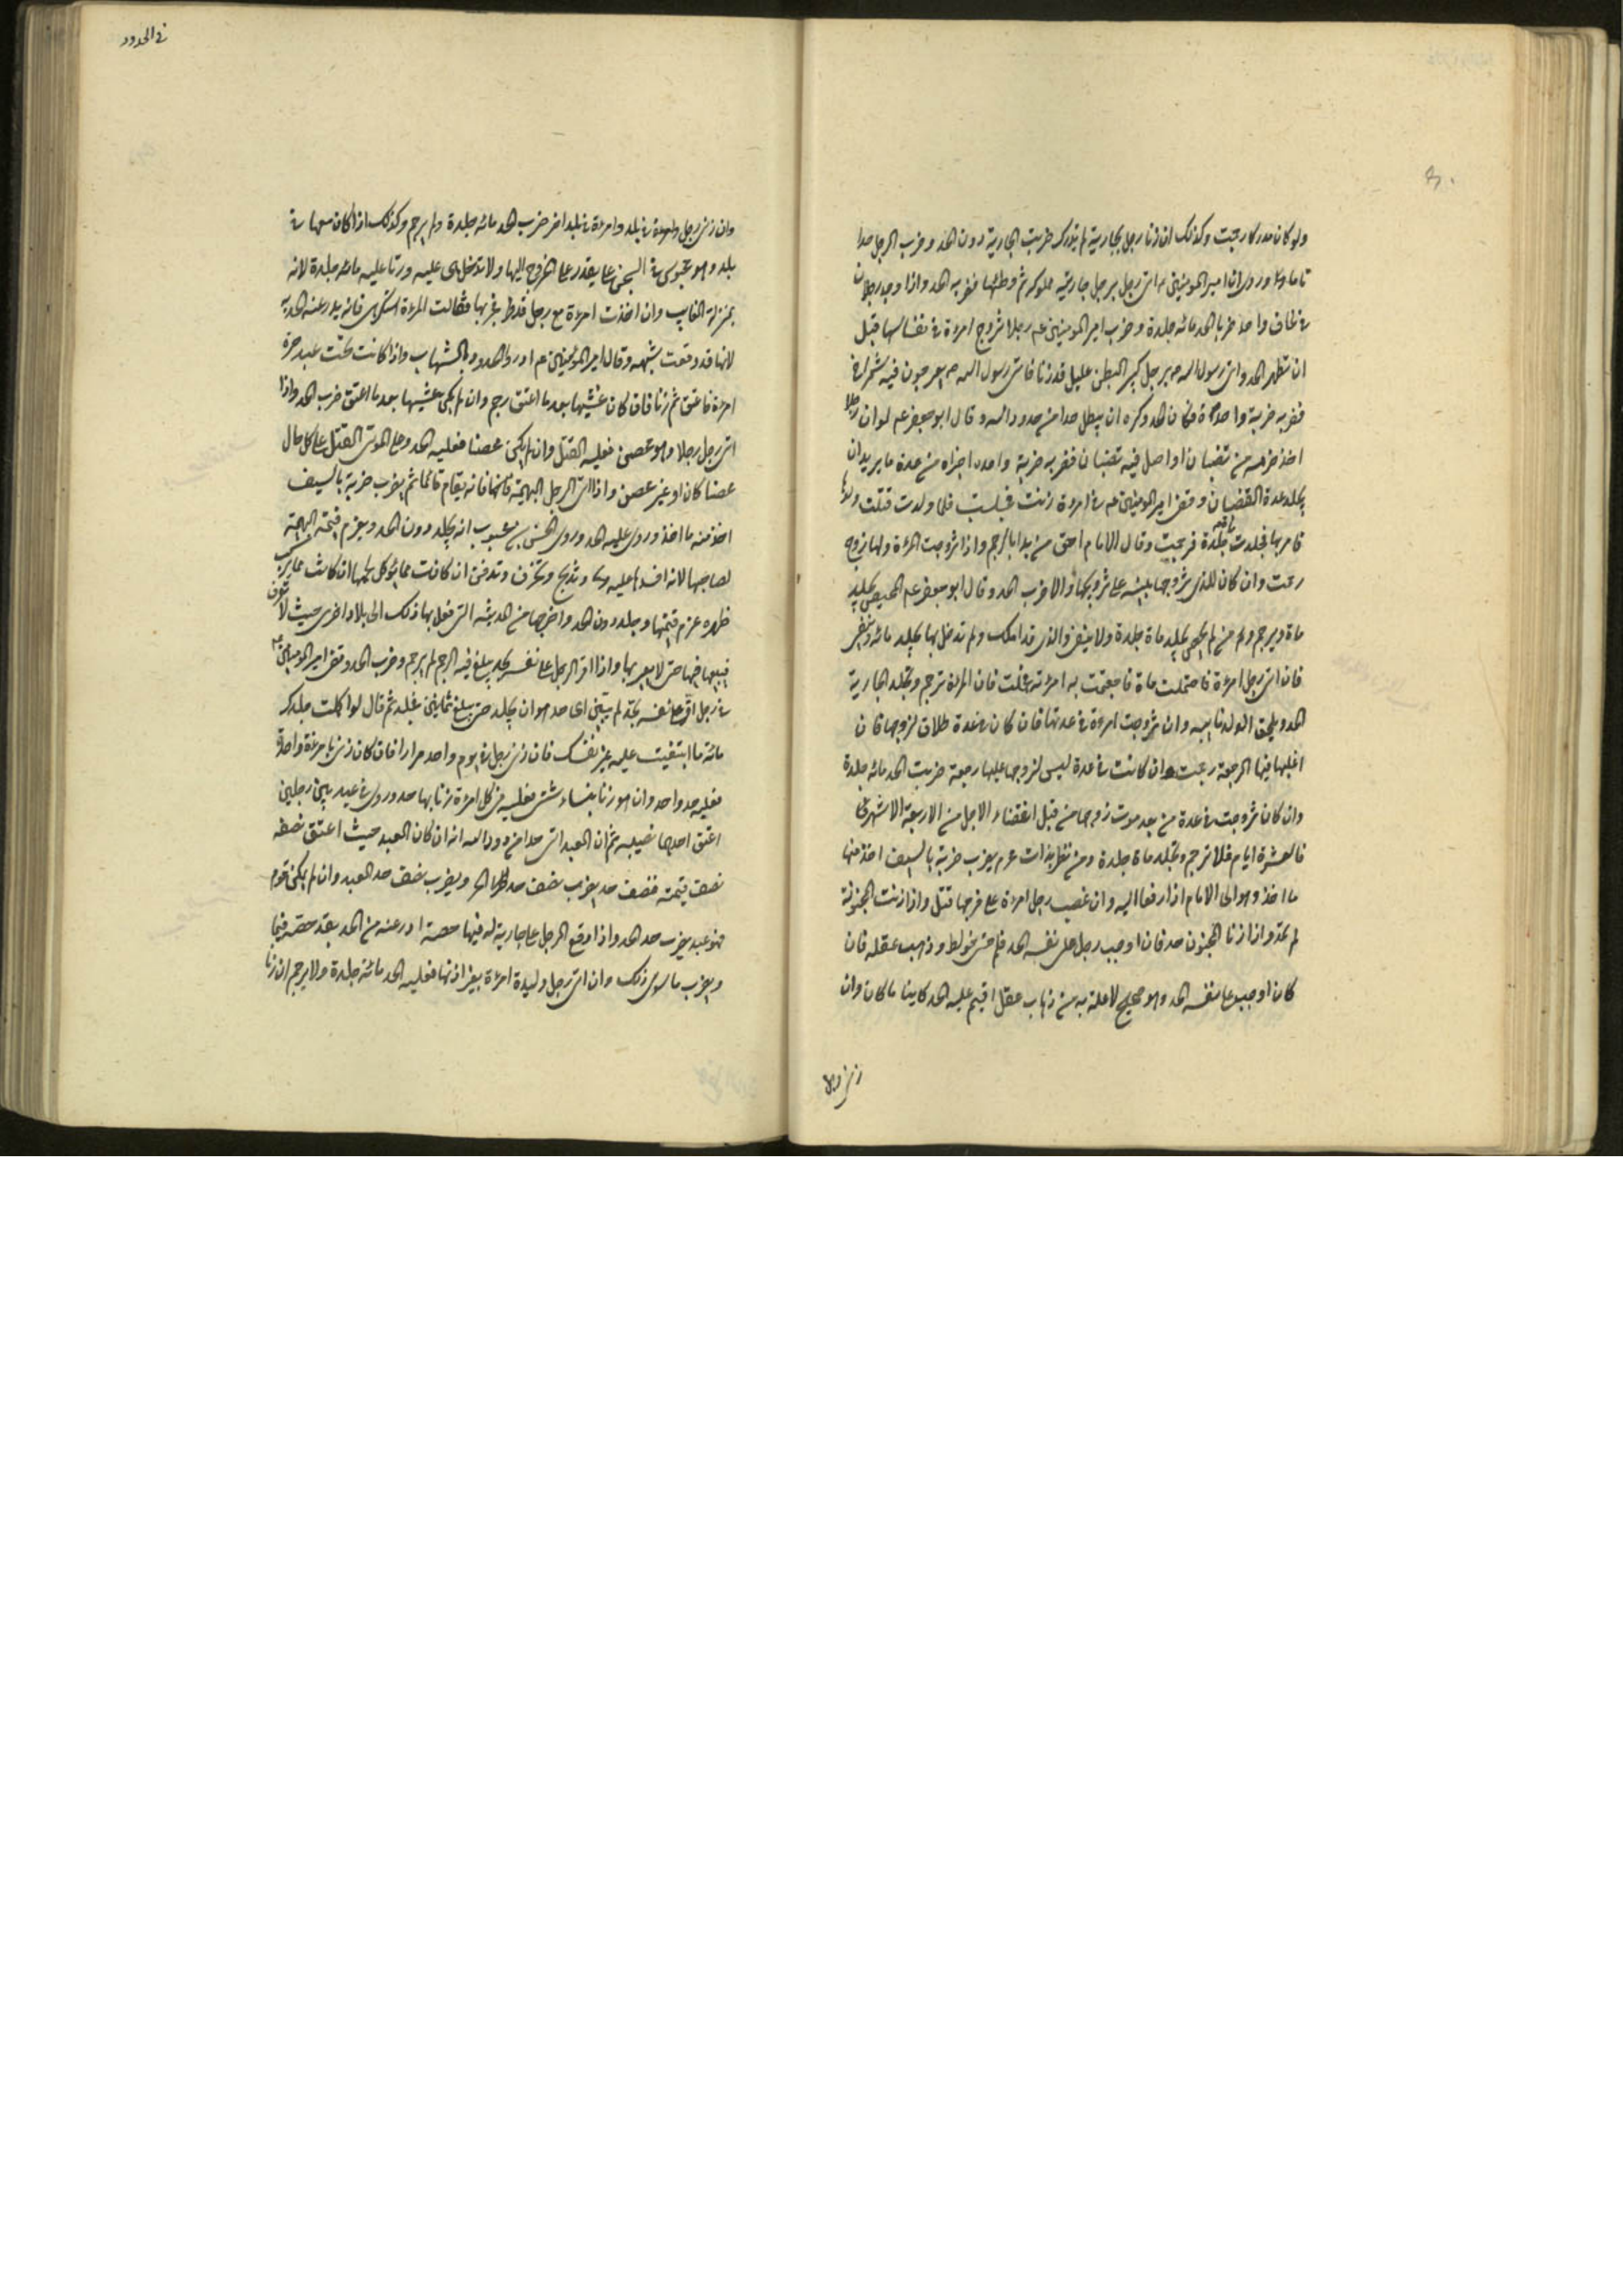 ولو كان مدركا رجمت وكذلك ان زنا رجل بجارية لم تدرك ضربت الجارية دون الحد وضرب الرجل حدا
تاما وروى ان امير المومنين ع اتى رجل برجل جاريته مملوكه ثم وطئها فضربه الحد واذا وجد رجلان
فى لحاف واحد ضربا الحد مائه جلدة وضرب امير المومنين عم رجلا تزوج امرءة فى نفاسها قبل
ان تطهر الحد واتى رسول الله ص برجل كبير البطن عليل قد زنا فاتى رسول الله ص بعرجون فيه شمراخ
فضربه ضربة واحدة فكان الحد وكره ان يبطل حدا من حدود الله وقال ابو جعفر عم لو ان رجلا
اخذ حزمه من قضبان او اصل فيه قضبان فضربه ضربة واحده اجزاه من عدة ما يريد ان
يجلد عدة القضبان وقضى امير المومنين عم فى امرءة زنت فحبلت فلما ولدت قتلت ولدها
فامر بها فجلدت مائة جلدة فرجمت وقال الامام احق من بدا بالرجم واذا تزوجت المرءة ولها زوج
رجمت وان كان للذى تزوجها بينه على تزويجها والا ضرب الحد وقال ابو جعفر عم المحصن يجلد
ماة ويرجم ومن لم يحصن يجلد ماة جلدة ولا ينفى والذى قد املك ولم تدخل بها يجلد مائه وينفى
فان اتى رجل امرءة فاحتملت ماءه فجامعت به امرءته فحملت فان المرءة ترجم وتجلد الجارية
الحد ويلحق الولد بابيه وان تزوجت امرءة فى عدتها فان كان فى عدة طلاق لزوجها فان
عليها فيها الرجعة رجمت وان كانت فى عدة ليس لزوجها عليها رجعة ضربت الحد مائه جلدة
وان كان تزوجت فى عدة من بعد موت زوجها من قبل انقضاء الاجل من الاربعة الاشهر
فالعشرة ايام فلا ترجم وتجلد ماة جلدة ومن نظر بذات محرم يضرب ضربة بالسيف اخذ منها
ما اخذ وهو الى الامام اذا رفعا اليه وان غصب رجل امرءة على فرجها قتل واذا زنت المجنونة
لم تحد واذا زنا المجنون حد فان اوجب رجل على نفسه الحد فلم حتى خولط وذهب عقله فان
كان اوجب على نفسه الحد وهو صحيح لا علة به من ذهاب عقل اقيم عليه الحد كاينا ما كان وان
زنى رجل
فى الحدود
وان زنى رجل وامرءة فى بلد وامرءة فى بلد اخر ضرب الحد مائه جلدة ولم يرجم وكذلك اذا كان معها فى
بلد وهو محبوس فى السجن على يقدر على الخروج اليها ولا تدخل هى عليه وزنا عليه مائه جلدة لانه
بمنزلة الغايب وان اخذت امرءة مع رجل قد فجر بها فقالت المرءة استكرهنى فانه يدرء عنها الحد به
لانها قد وقعت شبهه وقال امير المومنين عم ادرؤا الحدود بالشبهات واذا كانت تحت عبد حرة
امرءة فاعتق ثم زنا فان كان غشيها بعد ما اعتق رجم وان لم يكن غشيها بعد ما اعتق ضرب الحد واذا
اتى رجل رجلا وهو محصن فعليه القتل وان لم يكن محصنا فعليه الحد وعلى الموتى القتل على كل حال
محصنا كان او غير محصن واذا اتى الرجل البهيمة فانه يقام قائما ثم يضرب ضربة بالسيف
اخذ منه ما اخذ وروى عليه الحد وروى الحسن بن محبوب انه يجلد دون الحد ويغرم قيمة البهيمة
لصاحبها لانه افسدها عليه وتذبح وتحرق وتدفن ان كانت مما يؤكل لحمها وان كانت مما يركب
ظهره غرم قيمتها وجلد دون الحد واخرجها من المدينة التى فعل بها ذلك الى بلاد اخرى حيث لا تعرف
فيبيعها فيها حتى لا يعير بها واذا اقر الرجل على نفسه بحد يبلغ فيه الرجم لم يرجم وضرب الحد وقضى امير المومنين ع
فى رجل اقر على نفسه بحد لم يبين اى حد هو ان يجلد حتى يبلغ ثمانين فجلد ثم قال لو اكملت جلدك
مائه ما ابتغيت عليه غير نفسك فان زنى رجل فى يوم واحد مرارا فان كان زنى بامرءة واحدة
فعليه حد واحد وان هو زنا بنساء شتى فعليه فى كل امرءة زنا بها حد وروى فى عبد بين رجلين
اعتق احدهما نصيبه ثم ان العبد اتى حدا من حدود الله انه ان كان العبد حيث اعتق نصفه
نصف قيمته فنصف حد يضرب نصف حد الحر ويضرب نصف حد العبد وان لم يكن قوم
فهو عبد يضرب حد العبد واذا وقع الرجل على جارية له فيها حصة ادرء عنه من الحد بقدر حصته فيها
ويضرب ما سوى ذلك وان اتى رجل وليدة امرءة بغير اذنها فعليه الحد مائة جلدة ولا يرجم ان زنا